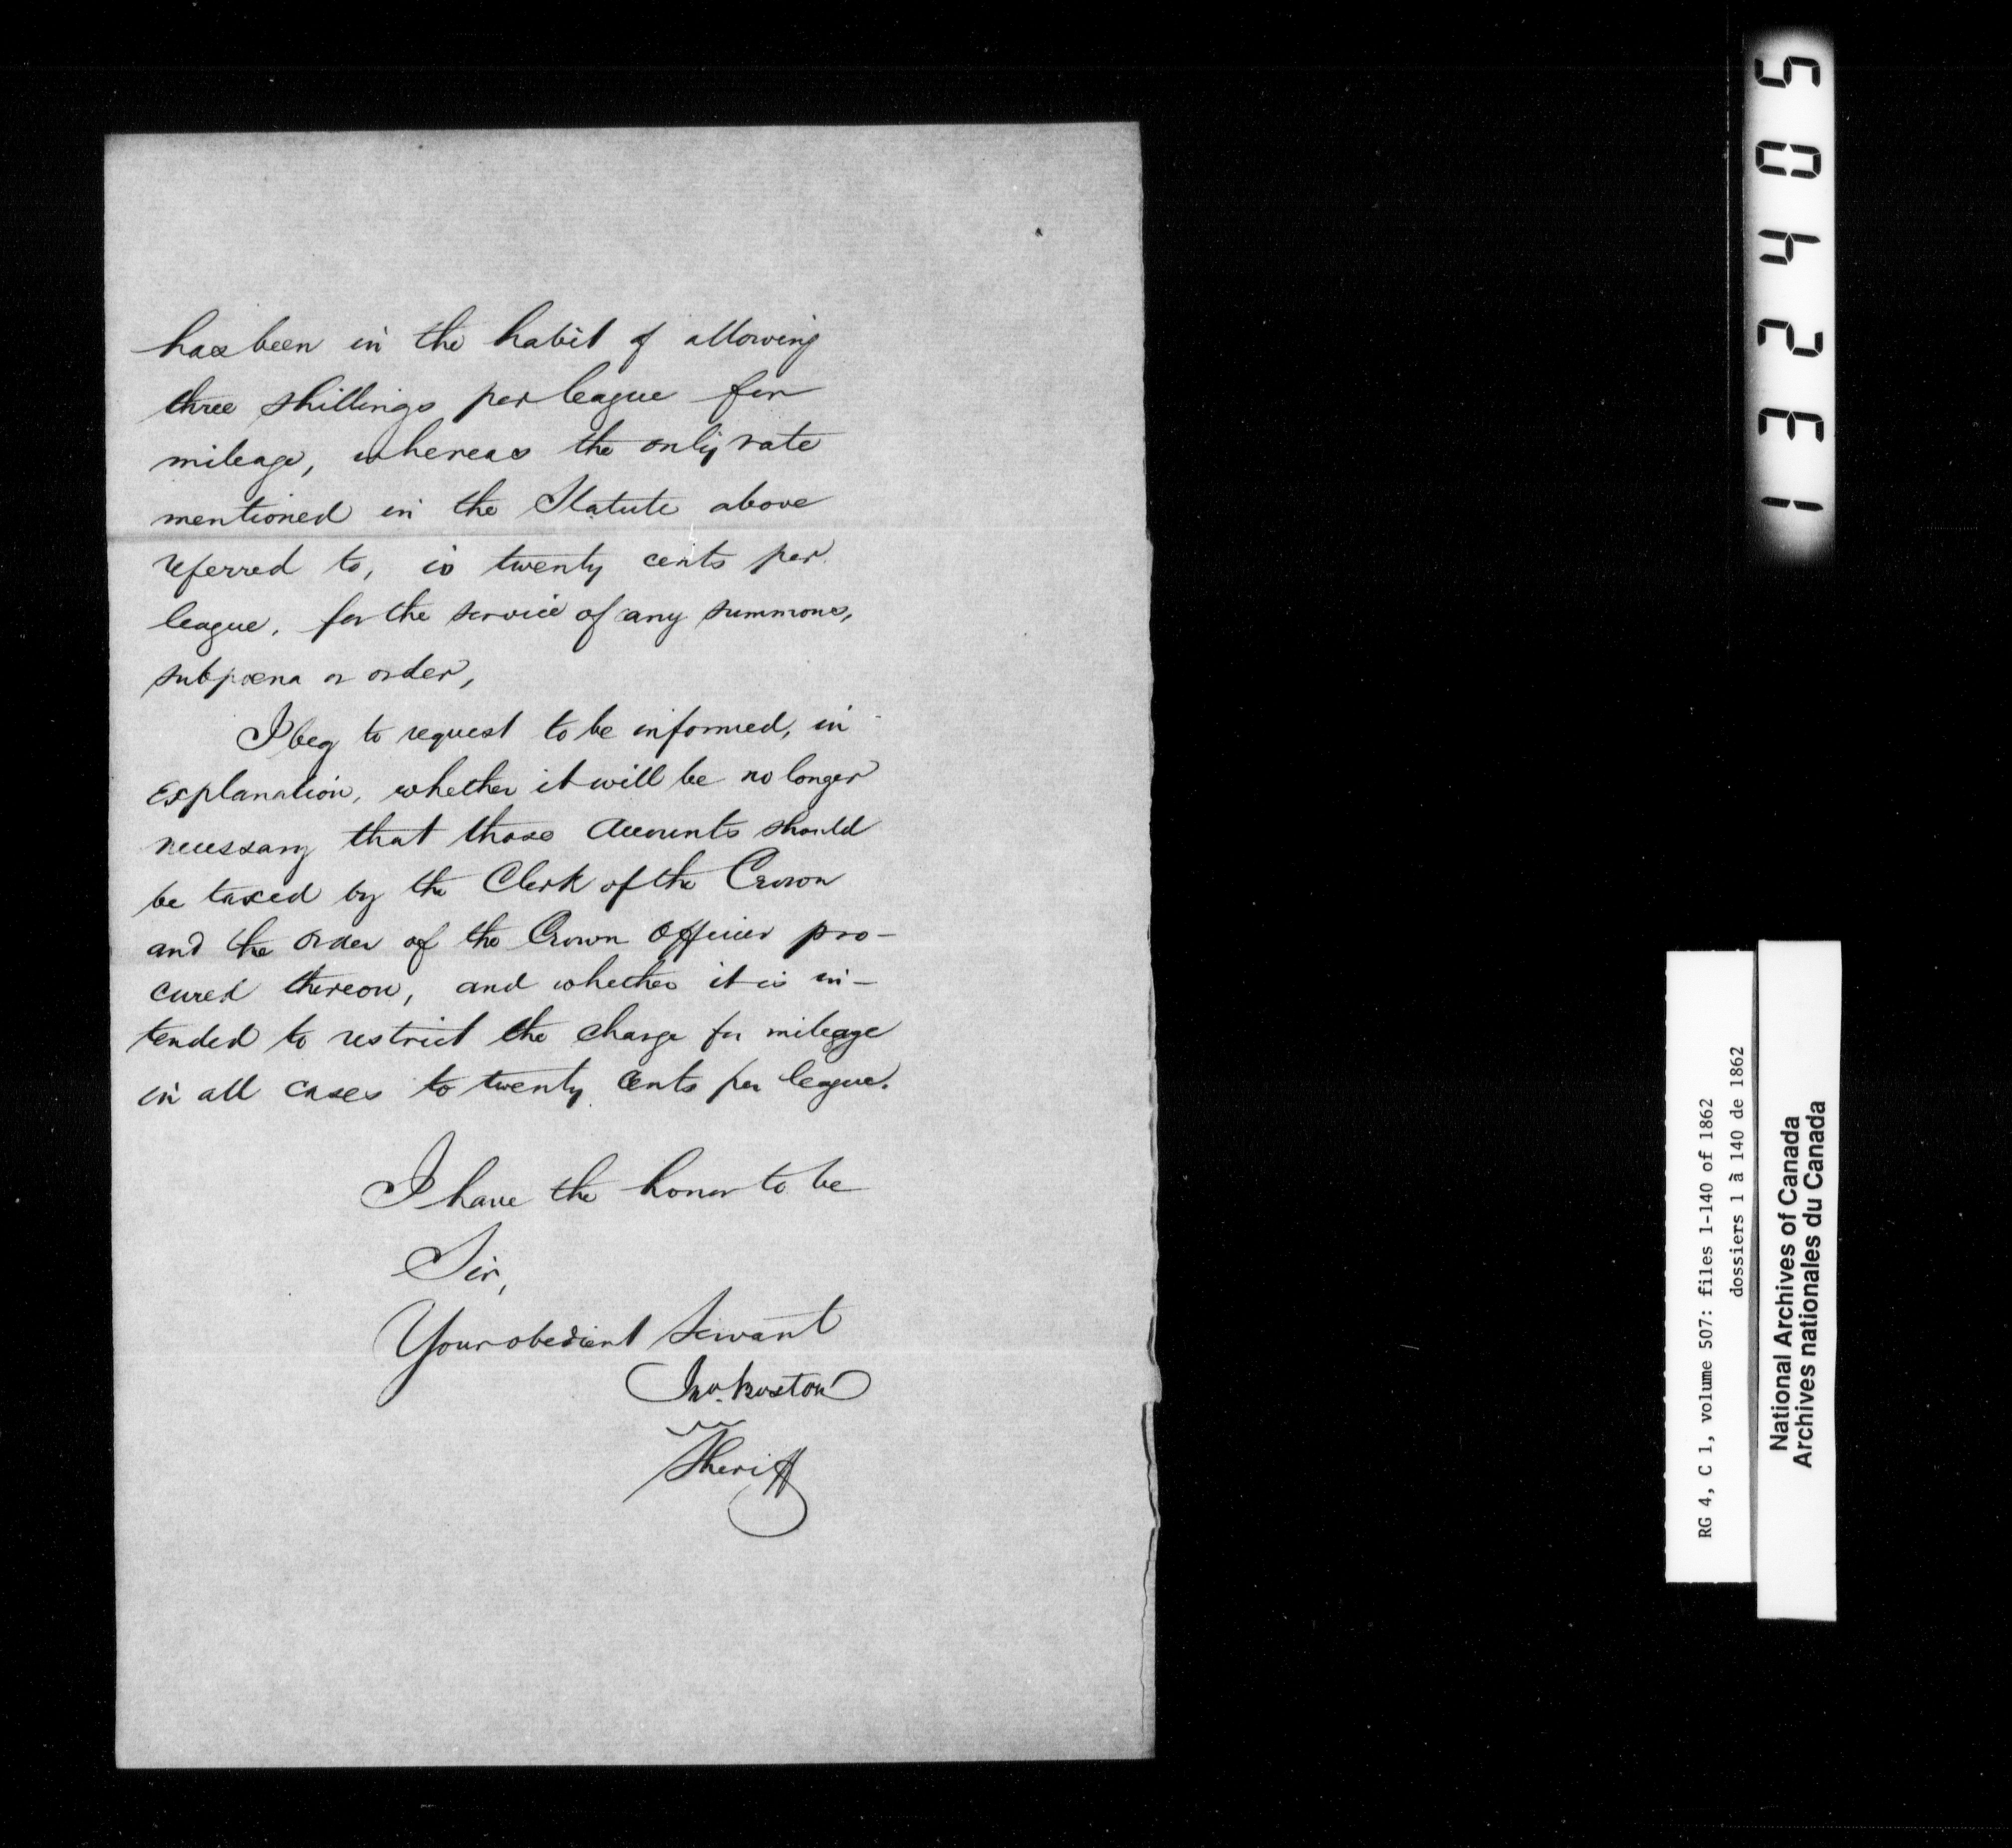 has been in the habit of allowing
three shillings per league for
mileage, whereas the only rate
mentioned in the Statute above
referred to, is twenty cents per
league, for the service of any summons,
subpœna or order,
I beg to request to be informed, in
explanation, whether it will be no longer
necessary that those Accounts should
be taxed by the Clerk of the Crown
and the order of the Crown Officer pro-
cured thereon, and whether it is in-
tended to restrict the charge for mileage
in all cases to twenty Cents per league.
I have the honor to be
Sir,
Your obedient Servant
Jno. Boston
Sheriff
132405
RG 4, C 1, volume 507: files 1-140 of 1862
dossiers 1 à 140 de 1862
National Archives of Canada
Archives nationales du Canada